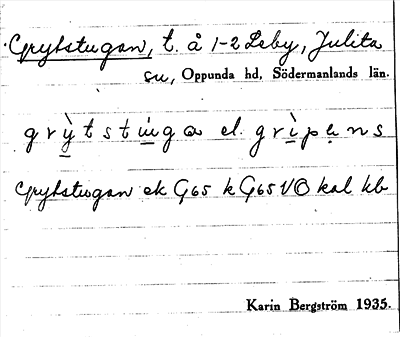 Grytstugan, t. å 1-2 Leby, Julita
sn, Oppunda hd, Södermanlands län.
grỳtstùga el. grìpens
Grytstugan ek G65 k G65 VO kal kb
Karin Bergström 1935.